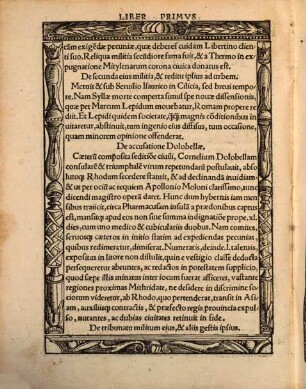 LIBER PRIMVS
eam exigēdæ pecuniæ, quæ deberet̃ cuidam Libertino clienti
suo. Reliqua militia secūdiore fama fuit, & a Thermo in expugnatione
Mitylenarum corona ciuica donatus est.
De secunda eius militia, & reditu ipsius ad vrbem.
Meruit & sub Seruilio Isaurico in Cilicia, sed breui tempore.
Nam Syllæ morte comperta simul spe nouæ dissensionis,
quæ per Marcum Lepidum mouebatur, Romam propere rediit.
Et Lepidi quidem societate, quāq̃ magnis cōditionibus inuitaretur,
abstinuit, tum ingenio eius diffisus, tum occasione,
quam minorem opinione offenderat.
De accusatione Dolobellæ.
Cæterū composita seditiōe ciuili, Cornelium Dolobellam
consularē & triumphalē virum repetundarū postulauit, absolutoq;
Rhodum secedere statuit, & ad declinandā inuidiam
& ut per ociū ac requiem Apollonio Moloni clarissimo, tunc
dicendi magistro operā daret. Hunc dum hybernis iam mensibus
traiicit, circa Pharmacusam insulā a prædonibus captus
est, mansitq; apud eos non sine summa indignatiōe prope. xl.
dies, cum uno medico & cubiculariis duobus. Nam comites,
seruosq; cæteros in initio statim ad expediendas pecunias,
quibus redimeretur, dimiserat. Numeratis, deinde. l. talentis,
expositus in litore non distulit, quin e vestigio classe deducta
persequeretur abeuntes, ac redactos in potestatem supplicio,
quod sæpe illis minatus inter iocum fuerat afficeret, vastante
regiones proximas Mithridate, ne desidere in discrimine sociorum
videretur, ab Rhodo, quo pertenderat, transiit in Asiam,
auxiliisq; contractis, & præfecto regis prouincia expulso,
nutantes, ac dubias ciuitates retinuit in fide.
De tribunatu militum eius, & aliis gestis ipsius.